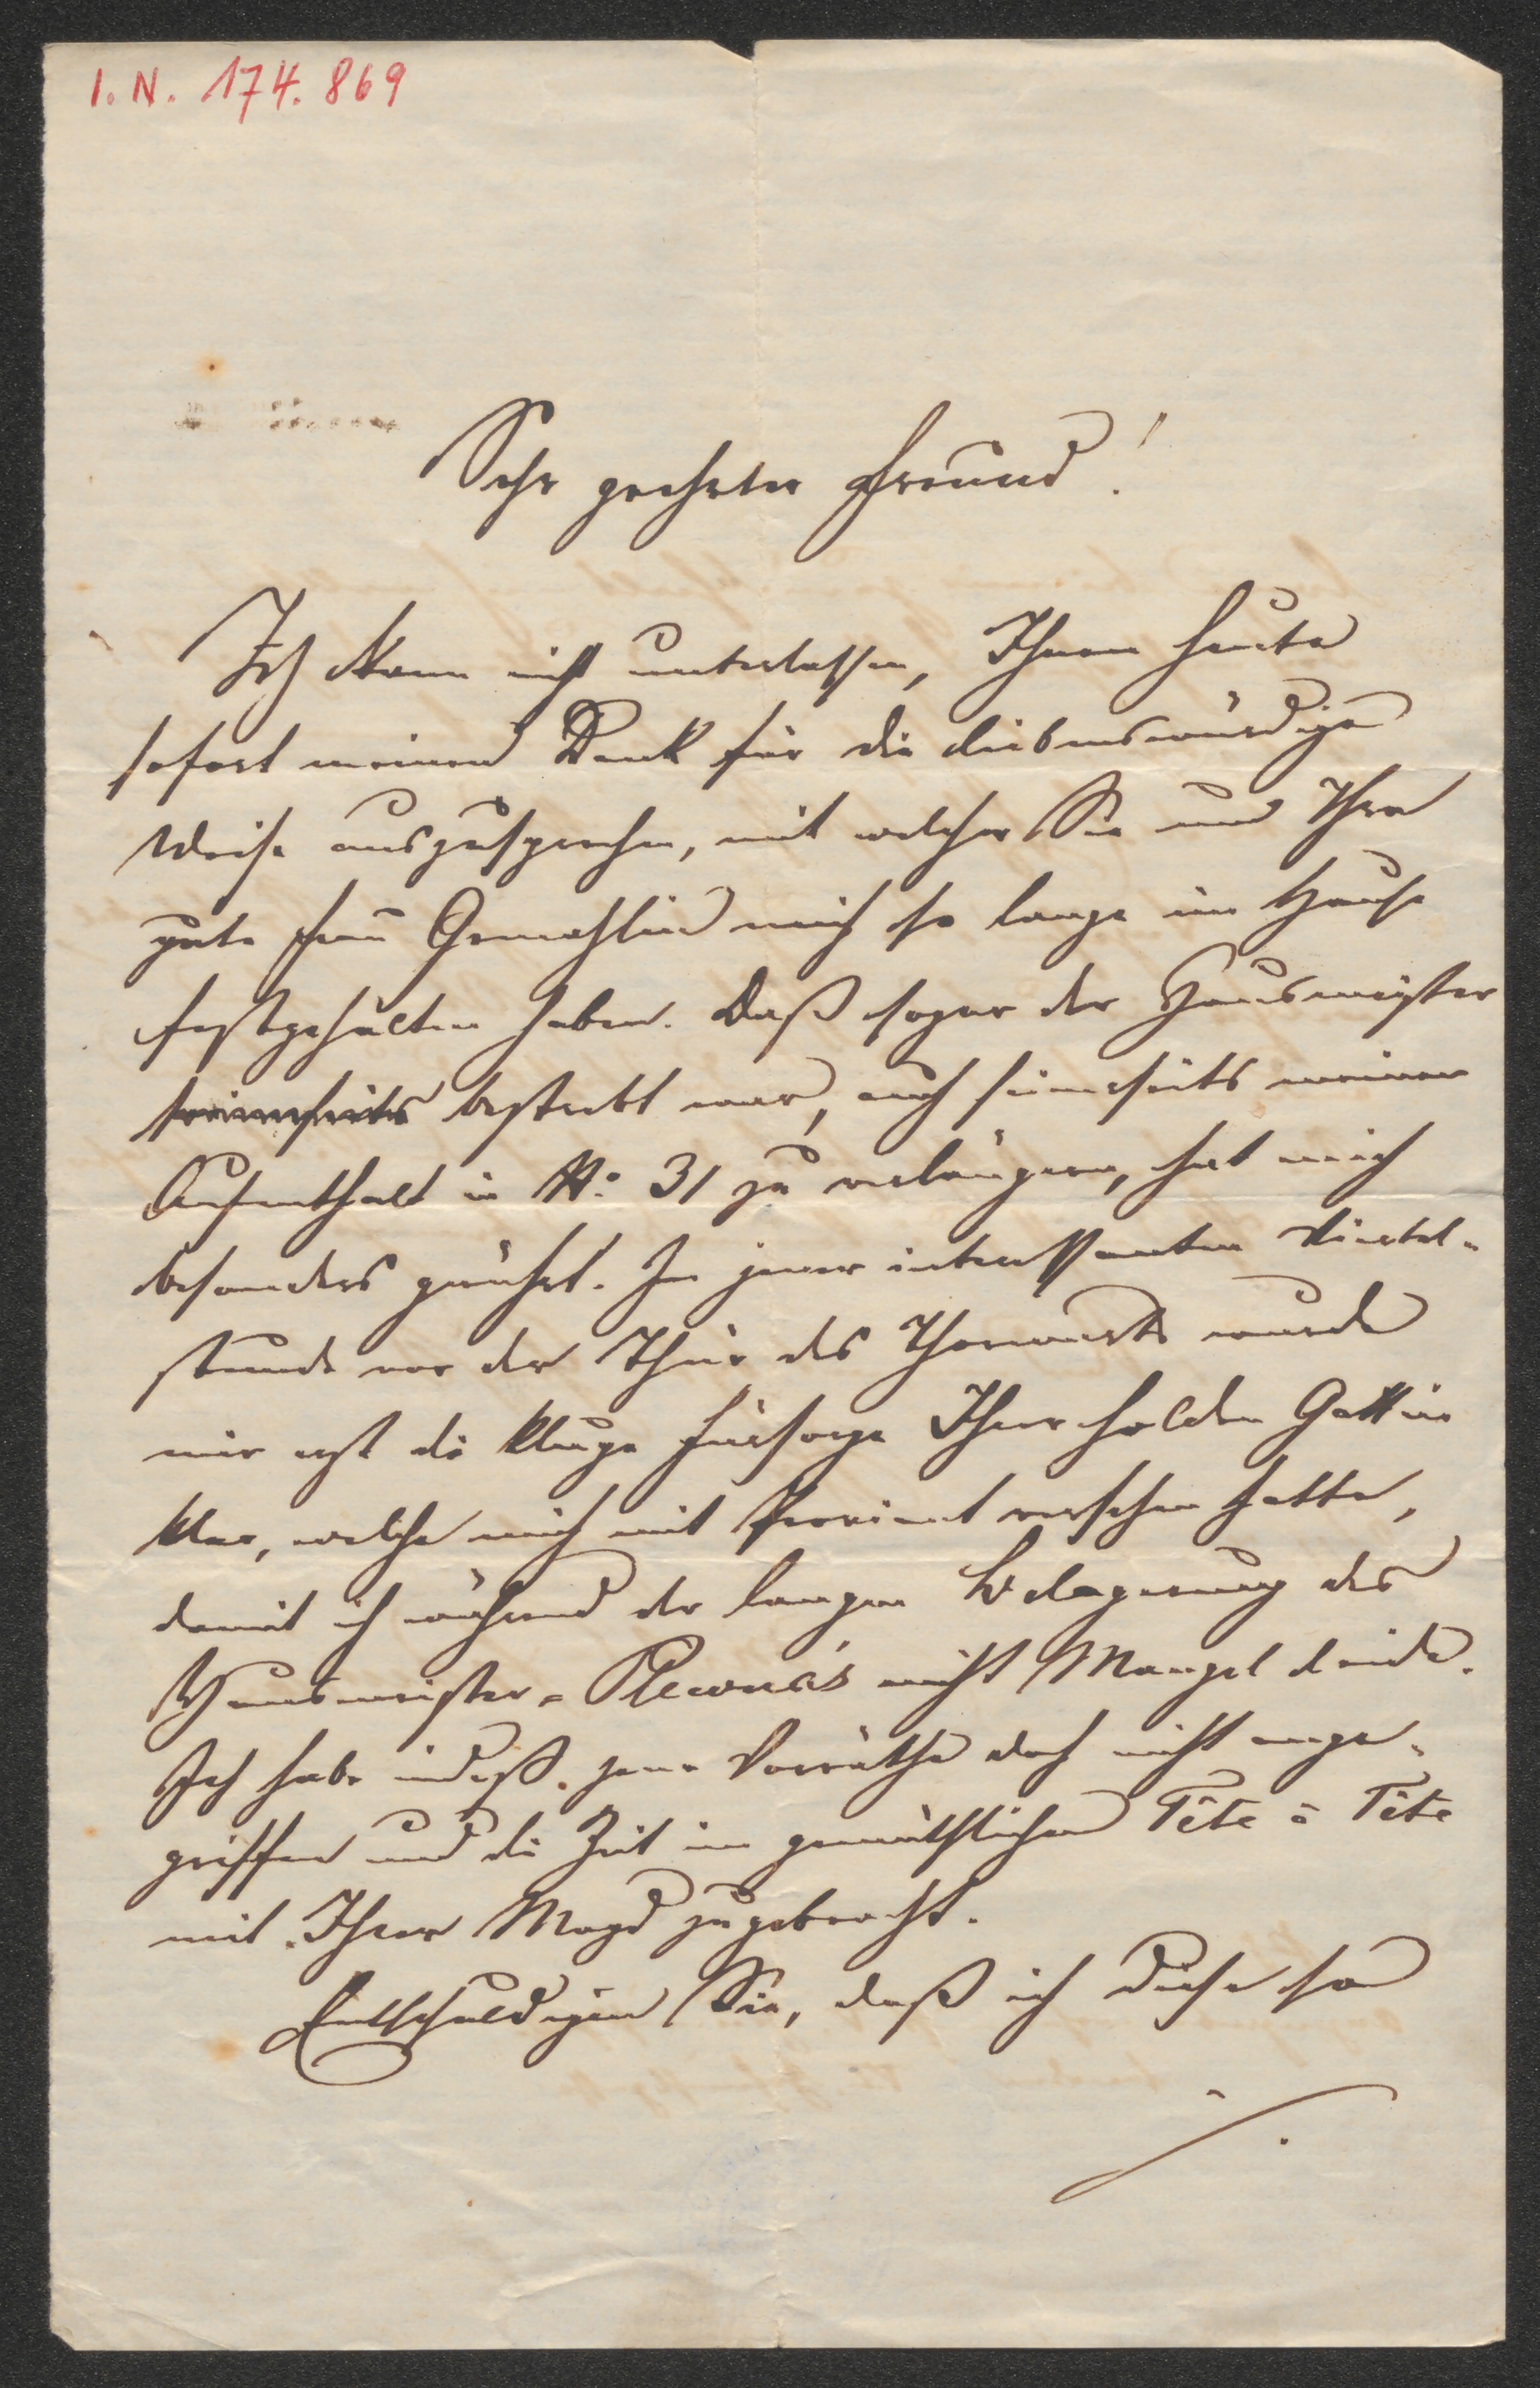 I. N. 174.869
Sehr geehrter Freund!
Ich kann nicht unterlassen, Ihnen heute
sofort meinen Dank für die liebenswürdige
Weise auszusprechen, mit welcher Sie und Ihre
gute Frau Gemahlin mich so lange im Hause
festgehalten haben. Daß sogar der Hausmeister
seinerseits bestrebt war, auch seinerseits meinen
Aufenthalt in No. 31 zu verlängern, hat mich
besonders gerührt. In jener interessanten Viertel-
stunde vor der Thür des Thorwarts wurde
mir erst die kluge Fürsorge Ihrer holden Gattin
klar, welche mich mit Proviant versehen hatte,
damit ich während der langen Belagerung des
Hausmeister-Plewna's nicht Mangel leide.
Ich habe indeß jene Vorräthe doch nicht ange-
griffen und die Zeit im gemüthlichen Tête à Tête
mit Ihrer Magd zugebracht.
Entschuldigen Sie, daß ich diese so